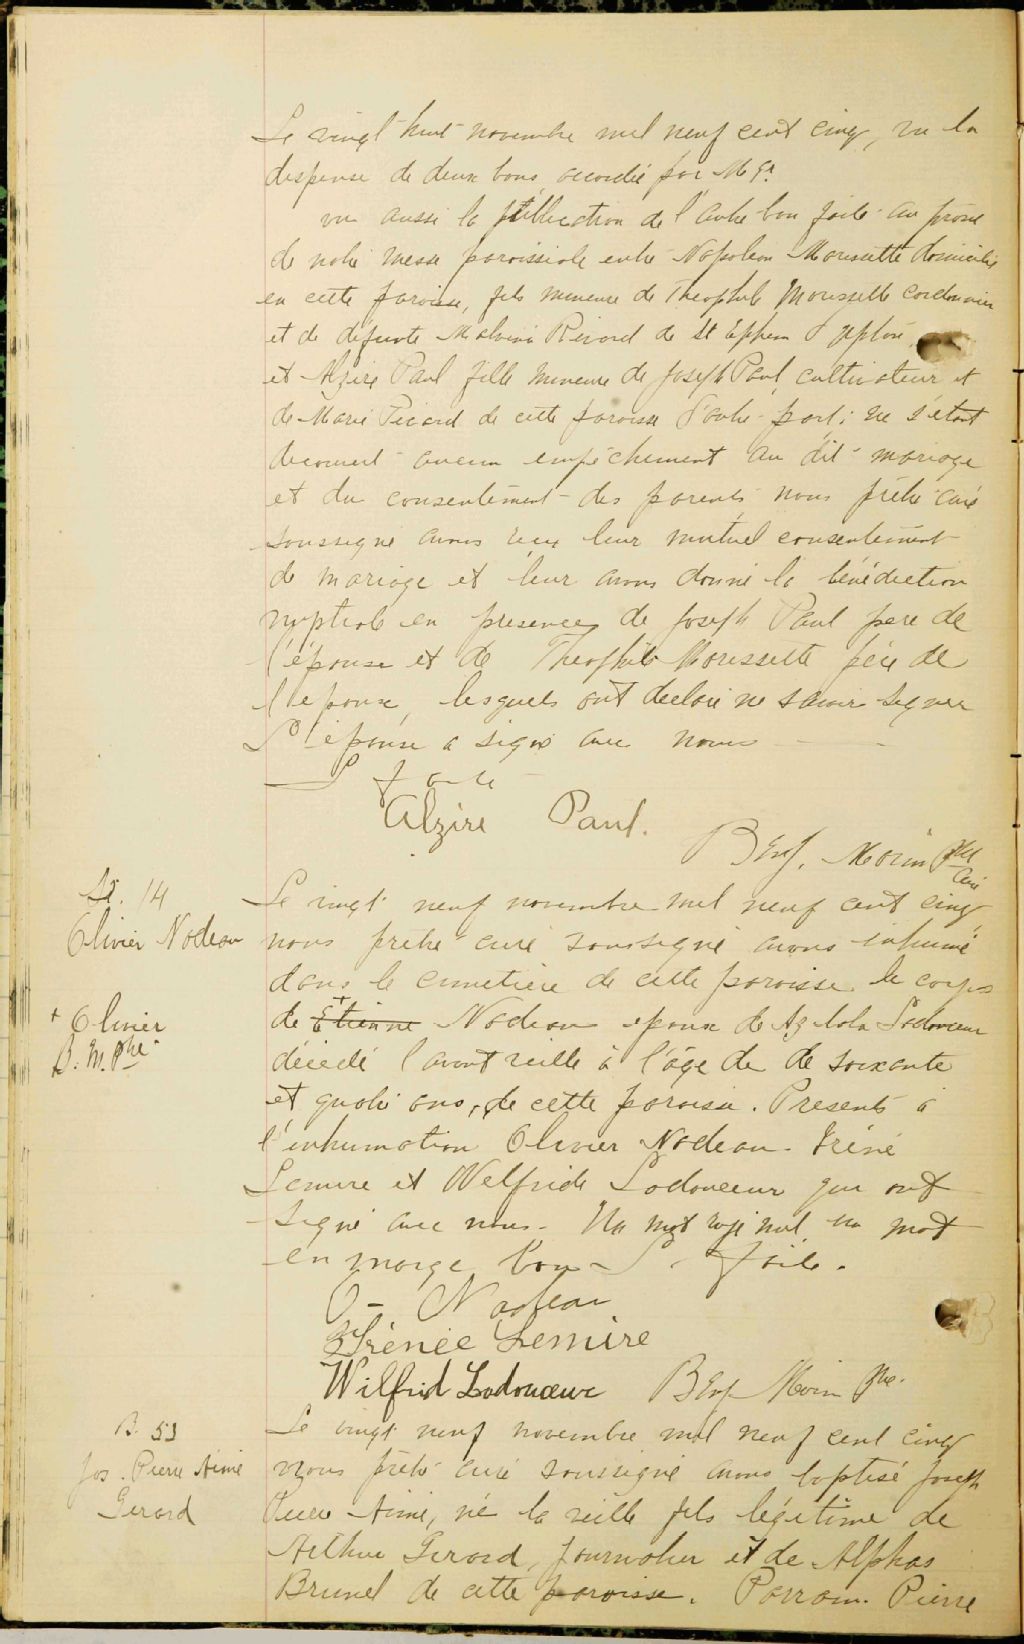 Le vingt huit novembre mil neuf cent cinq, vu la
dispense de deux bans accordée par Mgr
vu aussi la publication de l'autre ban faite au prone
de notre messe paroissiale entre Napoleon Morissette domicilié
en cette paroisse, fils mineure de Theophile Morissette cordonnier
et de defunte Malvina Rivard de St Ephrem d'Upton
et Alzire Paul fille mineure de Joseph Paul, cultivateur et
de Marie Picard de cette paroisse d'autre part; ne s'étant
decouvert aucun empêchement au dit mariage
et du consentement des parents nous prêtre curé
soussigné avons recu leur mutuel consentement
de mariage et leur avons donné la bénédiction
nuptiale en presence de Joseph Paul pere de
l'épouse et de Theophile Morissette père de
l'epoux, lesquels ont declaré ne savoir signer
L'épouse a signé avec nous
L. faite
Alzire Paul.
Benj. Morin Ptre
Curé
St. 14
Olivier Nadeau
Le vingt neuf novembre mil neuf cent cinq
nous prêtre curé soussigné avons inhumé
dans le cimetière de cette paroisse le corps
de + Etienne Nadeau epoux de Ladouceur
+ Olivier
B. M. Ptre
décedé l'avant veille à l'âge de de soixante
et quatre ans, de cette paroisse. Presents à
l'inhumation Olivier Nadeau. Iréné
Lemire et Welfride Ladouceur qui ont
signé avec nous. Un mot rayé nul, un mot
en marge bon L. faite.
O - Nadeau
Irénée Lemire
Wilfrid Ladouceur Benj. Morin Ptre.
B. 53
Jos. Pierre Aimé
Gerard
Le vingt neuf novembre mil neuf cent cinq
nous prêtre curé soussigné avons baptisé Joseph
Pierre Aimé, né la veille fils légitime de
Arthur Gerard, journalier et de Alphas
Brunel de cette paroisse. Parrain. Pierre